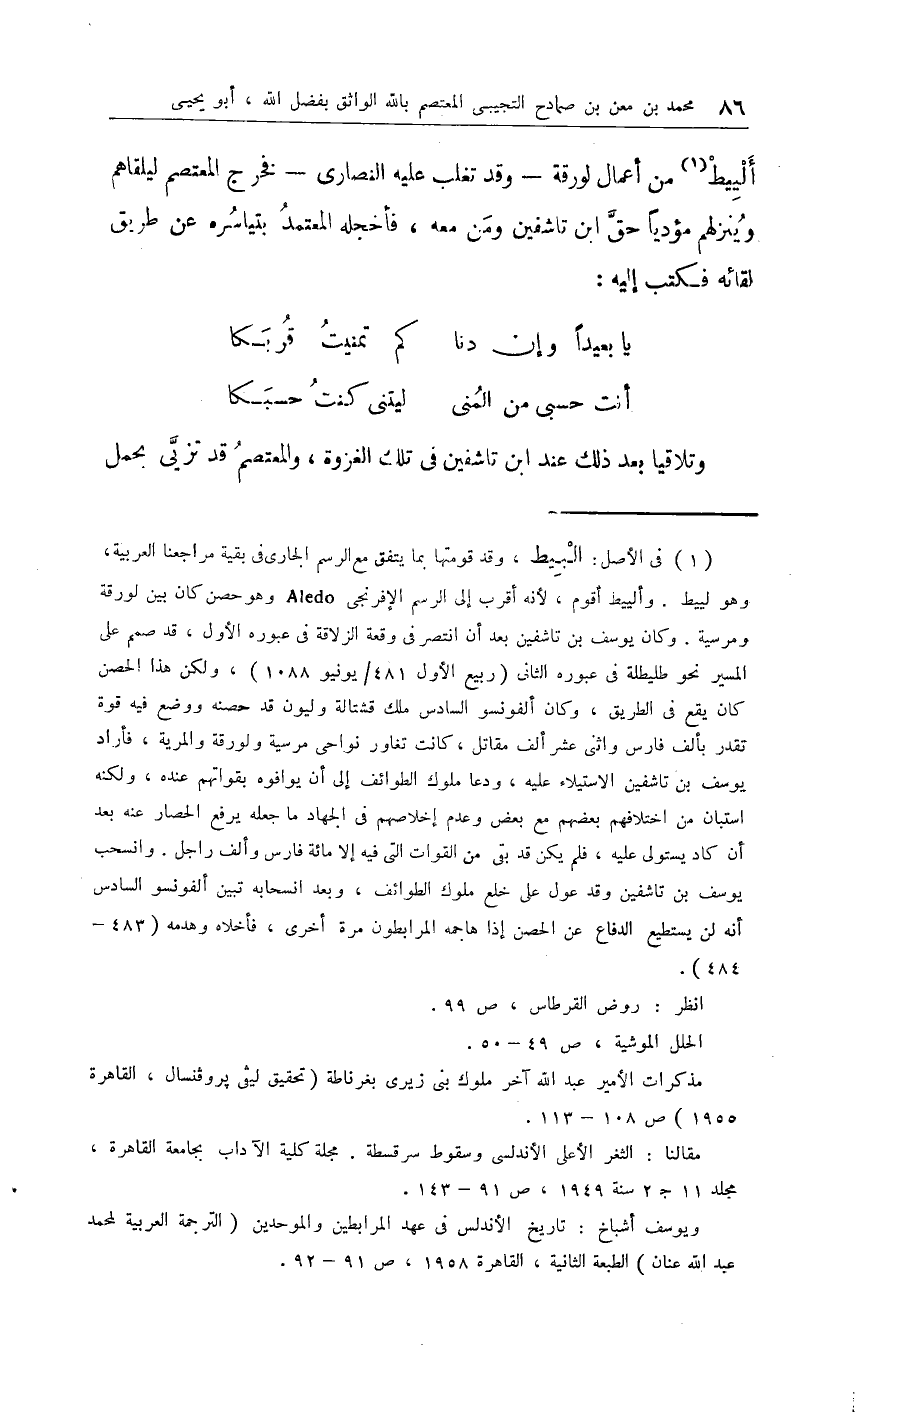 ٨٦ محمد بن معن بن صمادح التجيبى المعتصم بالله الواثق بفضل الله ، أبو يحيى
أَلْيِيطْ(١) من أعمال لورقة – وقد تغلب عليه النصارى – فخرج المعتصم ليلقاهم
ويُنزلهم مؤدياً حقَّ ابن تاشفين ومَن معه ، فأخجله المعتمدُ بتياسُره عن طريق
لقائه فكتب إليه :
يا بعيداً وإن دنا كم تمنيتُ قُربَكا
أنت حسبى من المُنى ليتنى كنتُ حسبَكا
وتلاقيا بعد ذلك عند ابن تاشفين فى تلك الغزوة ، والمعتصمُ قد تزيَّى بحمل
(١) فى الأصل : الْبِيط ، وقد قومتها بما يتفق مع الرسم الجارى فى بقية مراجعنا العربية ،
وهو لييط . وألييط أقوم ، لأنه أقرب إلى الرسم الإفرنجى Aledo وهو حصن كان بين لورقة
ومرسية . وكان يوسف بن تاشفين بعد أن انتصر فى وقعة الزلاقة فى عبوره الأول ، قد صمم على
المسير نحو طليطلة فى عبوره الثانى ( ربيع الأول ٤٨١/ يونيو ١٠٨٨ ) ، ولكن هذا الحصن
كان يقع فى الطريق ، وكان ألفونسو السادس ملك قشتالة وليون قد حصنه ووضع فيه قوة
تقدر بألف فارس واثنى عشر ألف مقاتل ، كانت تغاور نواحى مرسية ولورقة والمرية ، فأراد
يوسف بن تاشفين الاستيلاء عليه ، ودعا ملوك الطوائف إلى أن يوافوه بقواتهم عنده ، ولكنه
استبان من اختلافهم بعضهم مع بعض وعدم إخلاصهم فى الجهاد ما جعله يرفع الحصار عنه بعد
أن كاد يستولى عليه ، فلم يكن قد بقى من القوات التى فيه إلا مائة فارس وألف راجل . وانسحب
يوسف بن تاشفين وقد عول على خلع ملوك الطوائف ، وبعد انسحابه تبين ألفونسو السادس
أنه لن يستطيع الدفاع عن الحصن إذا هاجمه المرابطون مرة أخرى ، فأخلاه وهدمه ( ٤٨٣ –
٤٨٤ ) .
انظر : روض القرطاس ، ص ٩٩ .
الحلل الموشية ، ص ٤٩ – ٥٠ .
مذكرات الأمير عبد الله آخر ملوك بنى زيرى بغرناطة ( تحقيق ليثى پروڤنسال ، القاهرة
١٩٥٥ ) ص ١٠٨ – ١١٣ .
مقالنا : الثغر الأعلى الأندلسى وسقوط سرقسطة . مجلة كلية الآداب بجامعة القاهرة ،
مجلد ١١ ج ٢ سنة ١٩٤٩ ، ص ٩١ – ١٤٣ .
ويوسف أشباخ : تاريخ الأندلس فى عهد المرابطين والموحدين ( الترجمة العربية لمحمد
عبد الله عنان ) الطبعة الثانية ، القاهرة ١٩٥٨ ، ص ٩١ – ٩٢ .